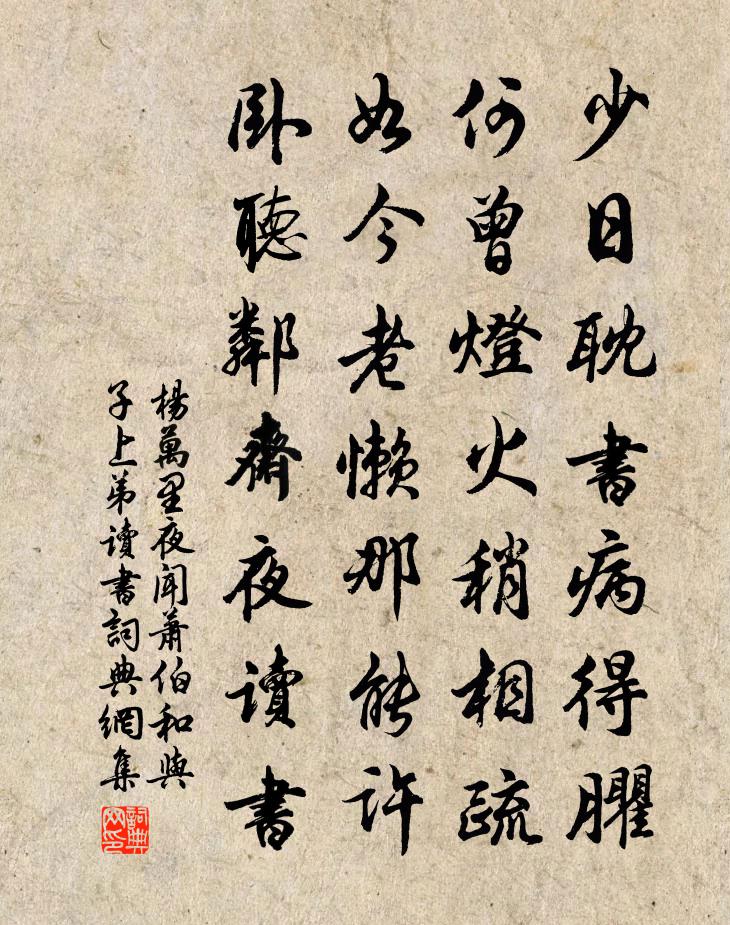 少日耽書病得臞
何曾燈火稍相疏
如今老懶那能許
臥聽鄰齋夜讀書
楊萬里夜聞蕭伯和與
子上弟讀書詞典網集
詞典
网印